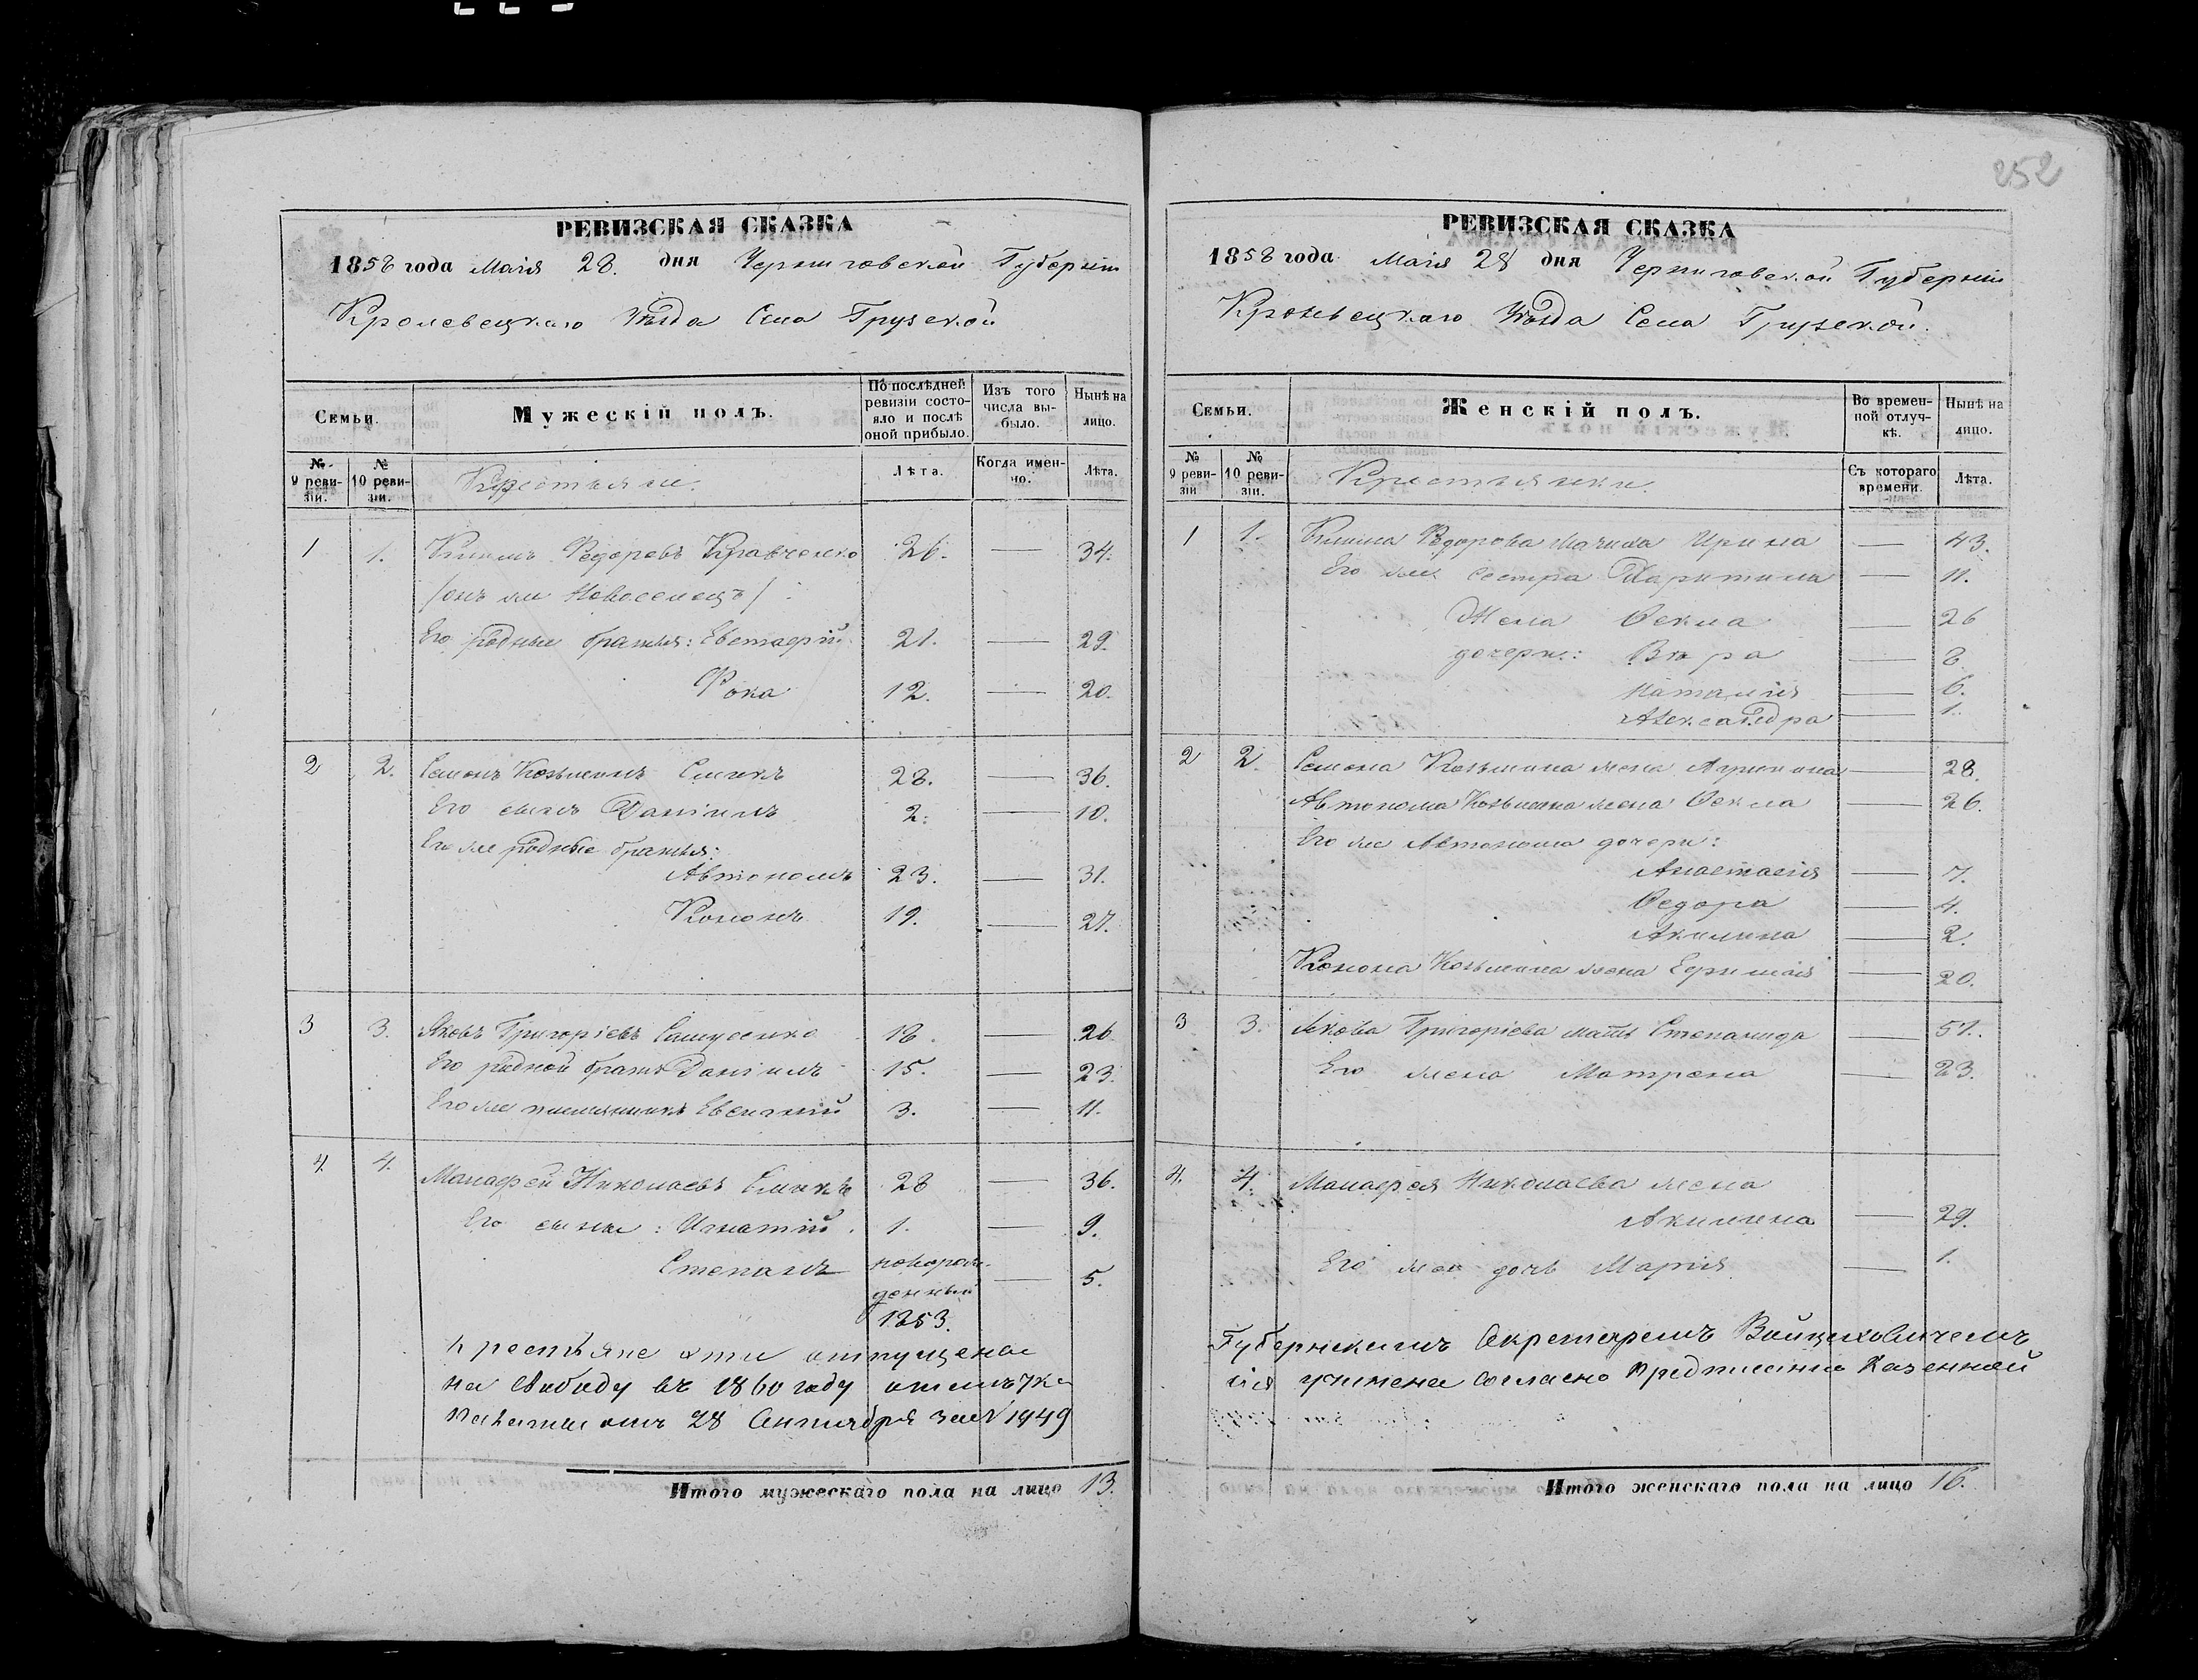 252
РЕВИЗСКАЯ СКАЗКА
1858 года Маія 28. дня Черниговской Губерніи
Кролевецкаго Уѣзда Села Грузской
Семьи.
Мужескій полъ.
По послѣдней ревизіи состояло и послѣ оной прибыло.
Изъ того числа выбыло.
Нынѣ на лицо.
№ 9 ревизіи.
№ 10 ревизіи.
Крестьяне.
Лѣта.
Когда именно.
Лѣта.
1 1. Климъ Федоровъ Кравченко 26. — 34.
/онъ же Новоселецъ/
Его родные братья: Евстафій 21. — 29.
Фока 12. — 20.
2 2. Семонъ Козьминъ Смыкъ 28. — 36.
Его сынъ Даніилъ 2. — 10.
Его же родные братья:
Автономъ 23. — 31.
Кононъ 19. — 27.
3 3. Яковъ Григорієвъ 18. — 26
Его родной братъ Даніилъ 15. — 23.
Его же племянникъ Евгеній 3. — 11.
4. 4. Манафей Николаевъ Смыкъ 28 — 36.
Его сыны: Игнатій 1. — 9.
Степанъ новорож-
денный — 5.
1853.
Крестьяне эти отпущены
на свободу въ 1860 году отмѣтка
Палаты отъ 28 Сентября за № 1949
Итого мужескаго пола на лицо 13.
РЕВИЗСКАЯ СКАЗКА
1858 года Маія 28 дня Черниговской Губерніи
Кролевецкаго Уѣзда Села Грузской.
Семьи.
Женскій полъ.
Во временной отлучкѣ.
Нынѣ на лицо.
№ 9 ревизіи
№ 10 ревизіи.
Крестьянки.
Съ котораго времени.
Лѣта.
1 1. Клима Федорова Мачиха Ирина — 43.
Его же сестра Харитина — 11.
Жена Фекла — 26
дочери: Вѣра — 8
Наталія — 6.
Александра — 1.
2 2. Семона Козьмина жена Агрипина — 28.
Автонома Козьмина жена Фекла — 26.
Его же Автонома дочери:
Анастасія — 7.
Федора — 4.
Акилина — 2.
Конона Козьмина жена Ефимія — 20.
3 3. Якова Григорієва мать Степанида — 51.
Его жена Матрена — 23.
4. 4. Манафея Николаева жена
Акилина — 29.
Его же дочь Марія — 1.
Губернскимъ Секретаремъ Войцеховичемъ
учинена согласно предписанію Казенной
Итого женскаго пола на лицо 16.